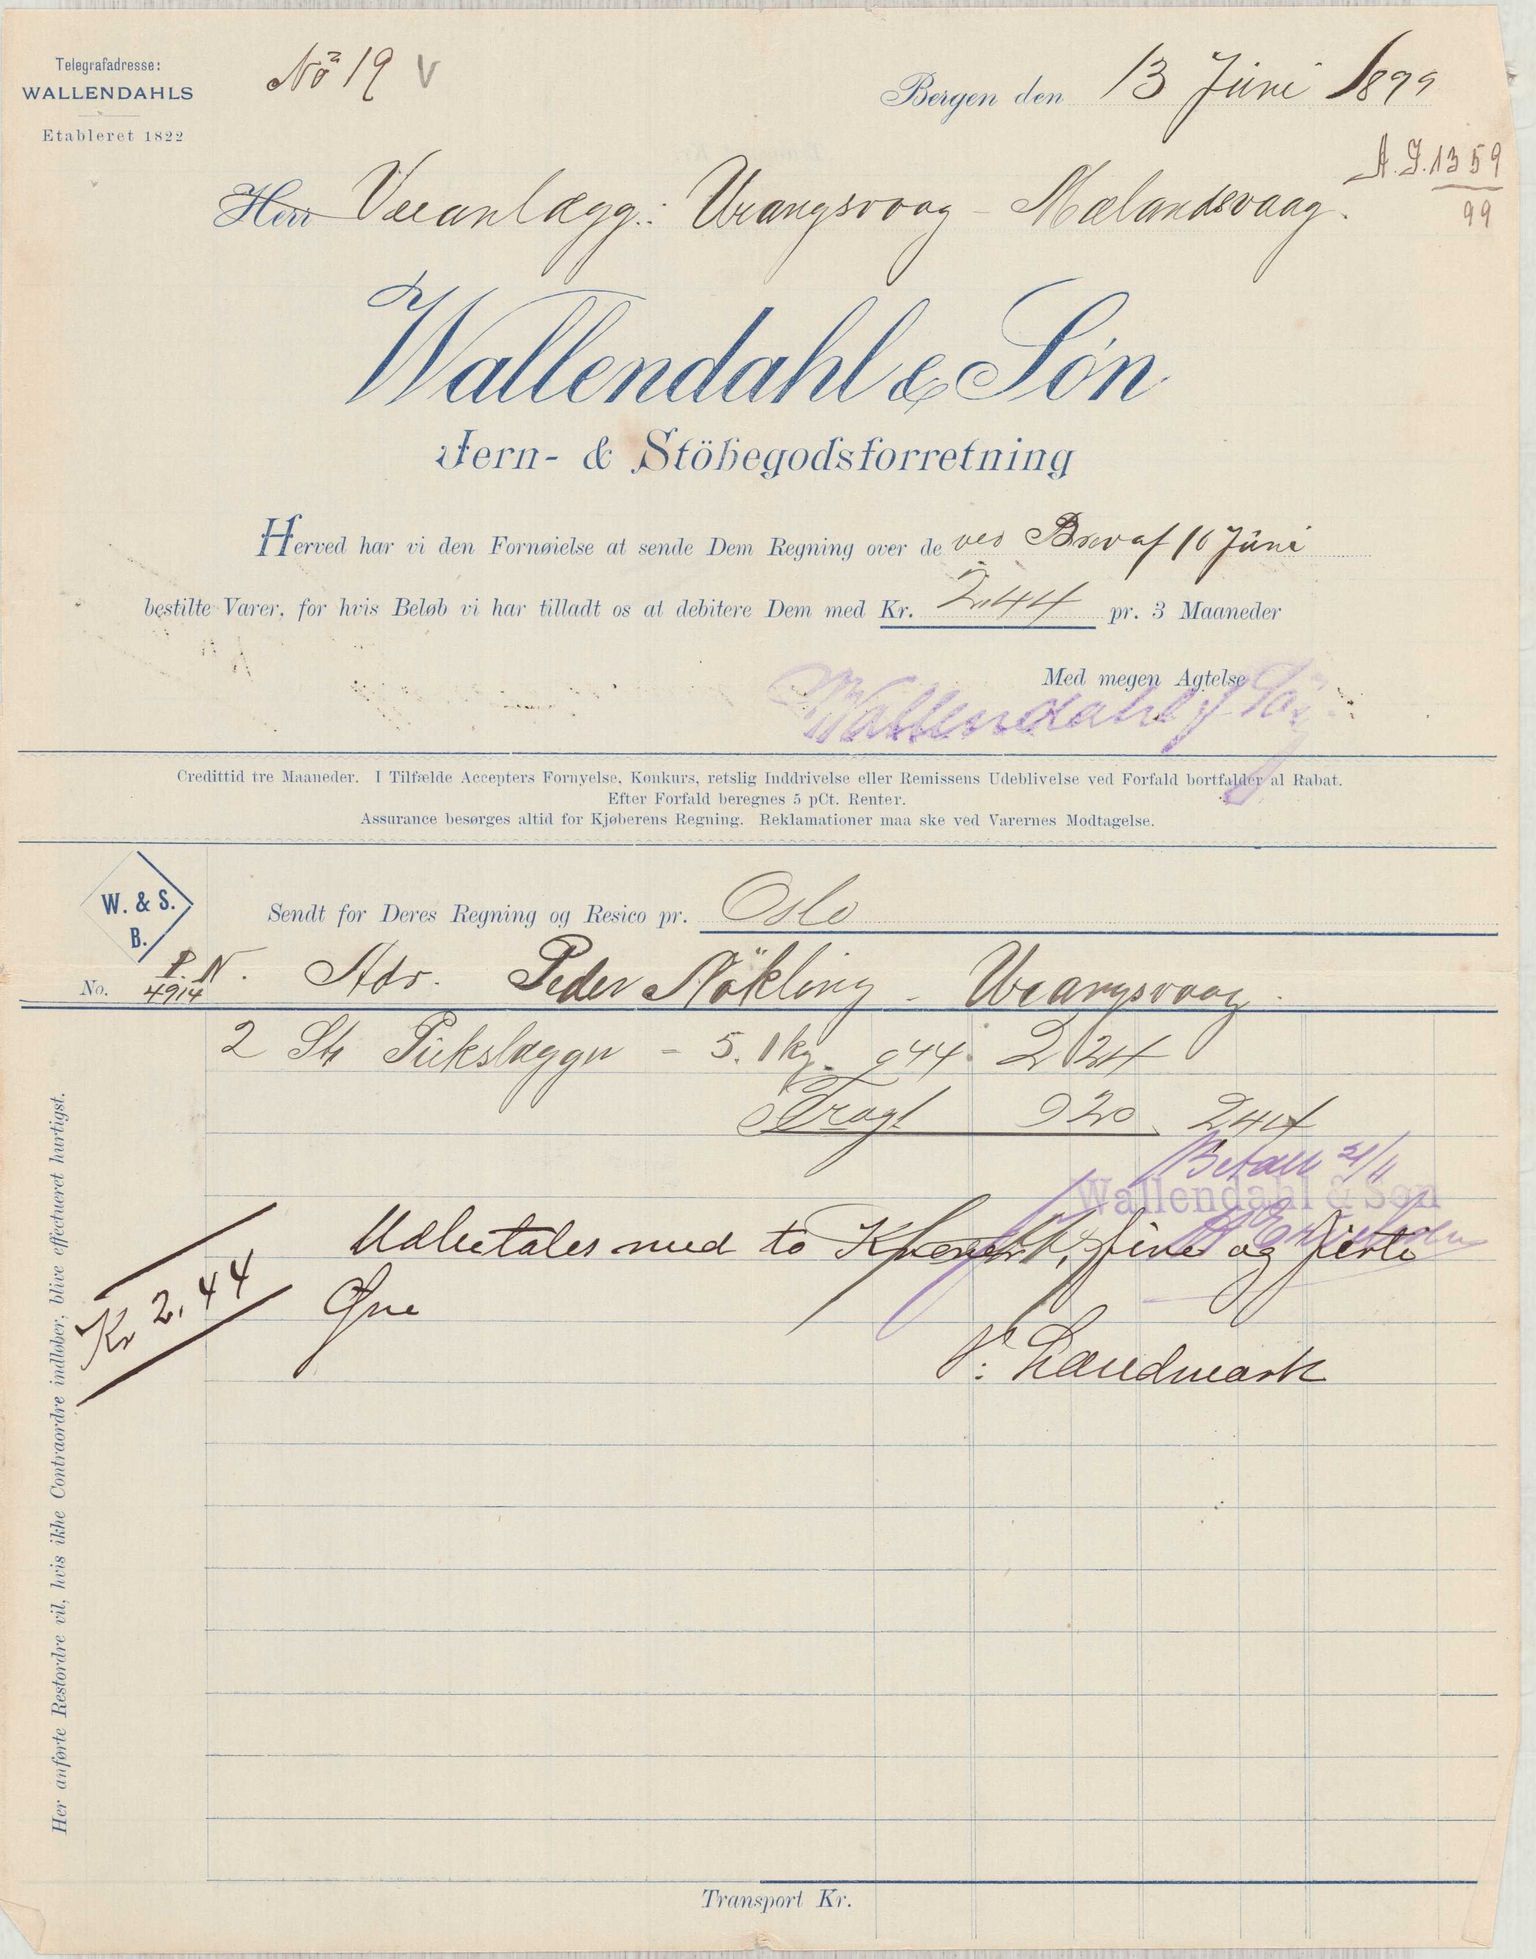 Telegrafadresse:
WALLENDAHLS
Etableret 1822
No 19 V
Bergen den 13 Juni 1899
A. J. 1359
99
Herr Veianlægg: Vrangsvaag - Mælandsvaag.
Wallendahl & Søn
Jern- & Stöbegodsforretning
Herved har vi den Fornøielse at sende Dem Regning over de ved Brev af 10 Juni
bestilte Varer, for hvis Beløb vi har tilladt os at debitere Dem med Kr. 2,44 pr. 3 Maaneder
Med megen Agtelse
Wallendahl & Søn
Credittid tre Maaneder. I Tilfælde Accepters Fornyelse, Konkurs, retslig Inddrivelse eller Remissens Udeblivelse ved Forfald bortfalder al Rabat.
Efter Forfald beregnes 5 pCt. Renter.
Assurance besørges altid for Kjøberens Regning. Reklamationer maa ske ved Varernes Modtagelse.
W. & S.
B.
Sendt for Deres Regning og Resico pr. Oslo
No. P. N. 4914 Adr. Peder Nökling - Vrangsvaag.
2 St Pukslægger - 5.1 kg. 044. 2 24
Fragt 0 20 244
Betalt 21/11
Wallendahl & Søn
Udbetales med to Kroner, fire og firti
Øre
Kr 2,44
V: Landmark
Her anførte Restordre vil, hvis ikke Contraordre indløber, blive effectueret hurtigst.
Transport Kr.